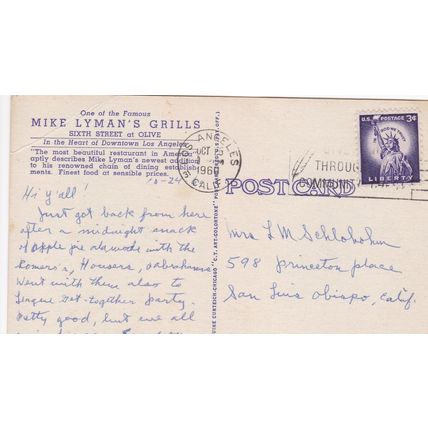 One of the Famous
MIKE LYMAN'S GRILLS
SIXTH STREET at OLIVE
In the Heart of Downtown Los Angeles
"The most beautiful restaurant in America"
aptly describes Mike Lyman's newest addition
to his renowned chain of dining establish-
ments. Finest food at sensible prices.
Hi y'all!
Just got back from here
after a midnight snack
of apple pie alamode with the
Romero's, Housers,
Went with them also to
League get-together party.
Pretty good, but we all
LOS ANGELES
OCT
1960
CALIF.
THROUGH
COMMUNITY
U.S. POSTAGE 3¢
IN GOD WE TRUST
LIBERTY
POST CARD
Mrs L M Schlobohm
598 Princeton place
San Luis Obispo, Calif.
CURTEICH-CHICAGO "C.T. ART-COLORTONE" POST CARD (REG. U.S. PAT. OFF.)